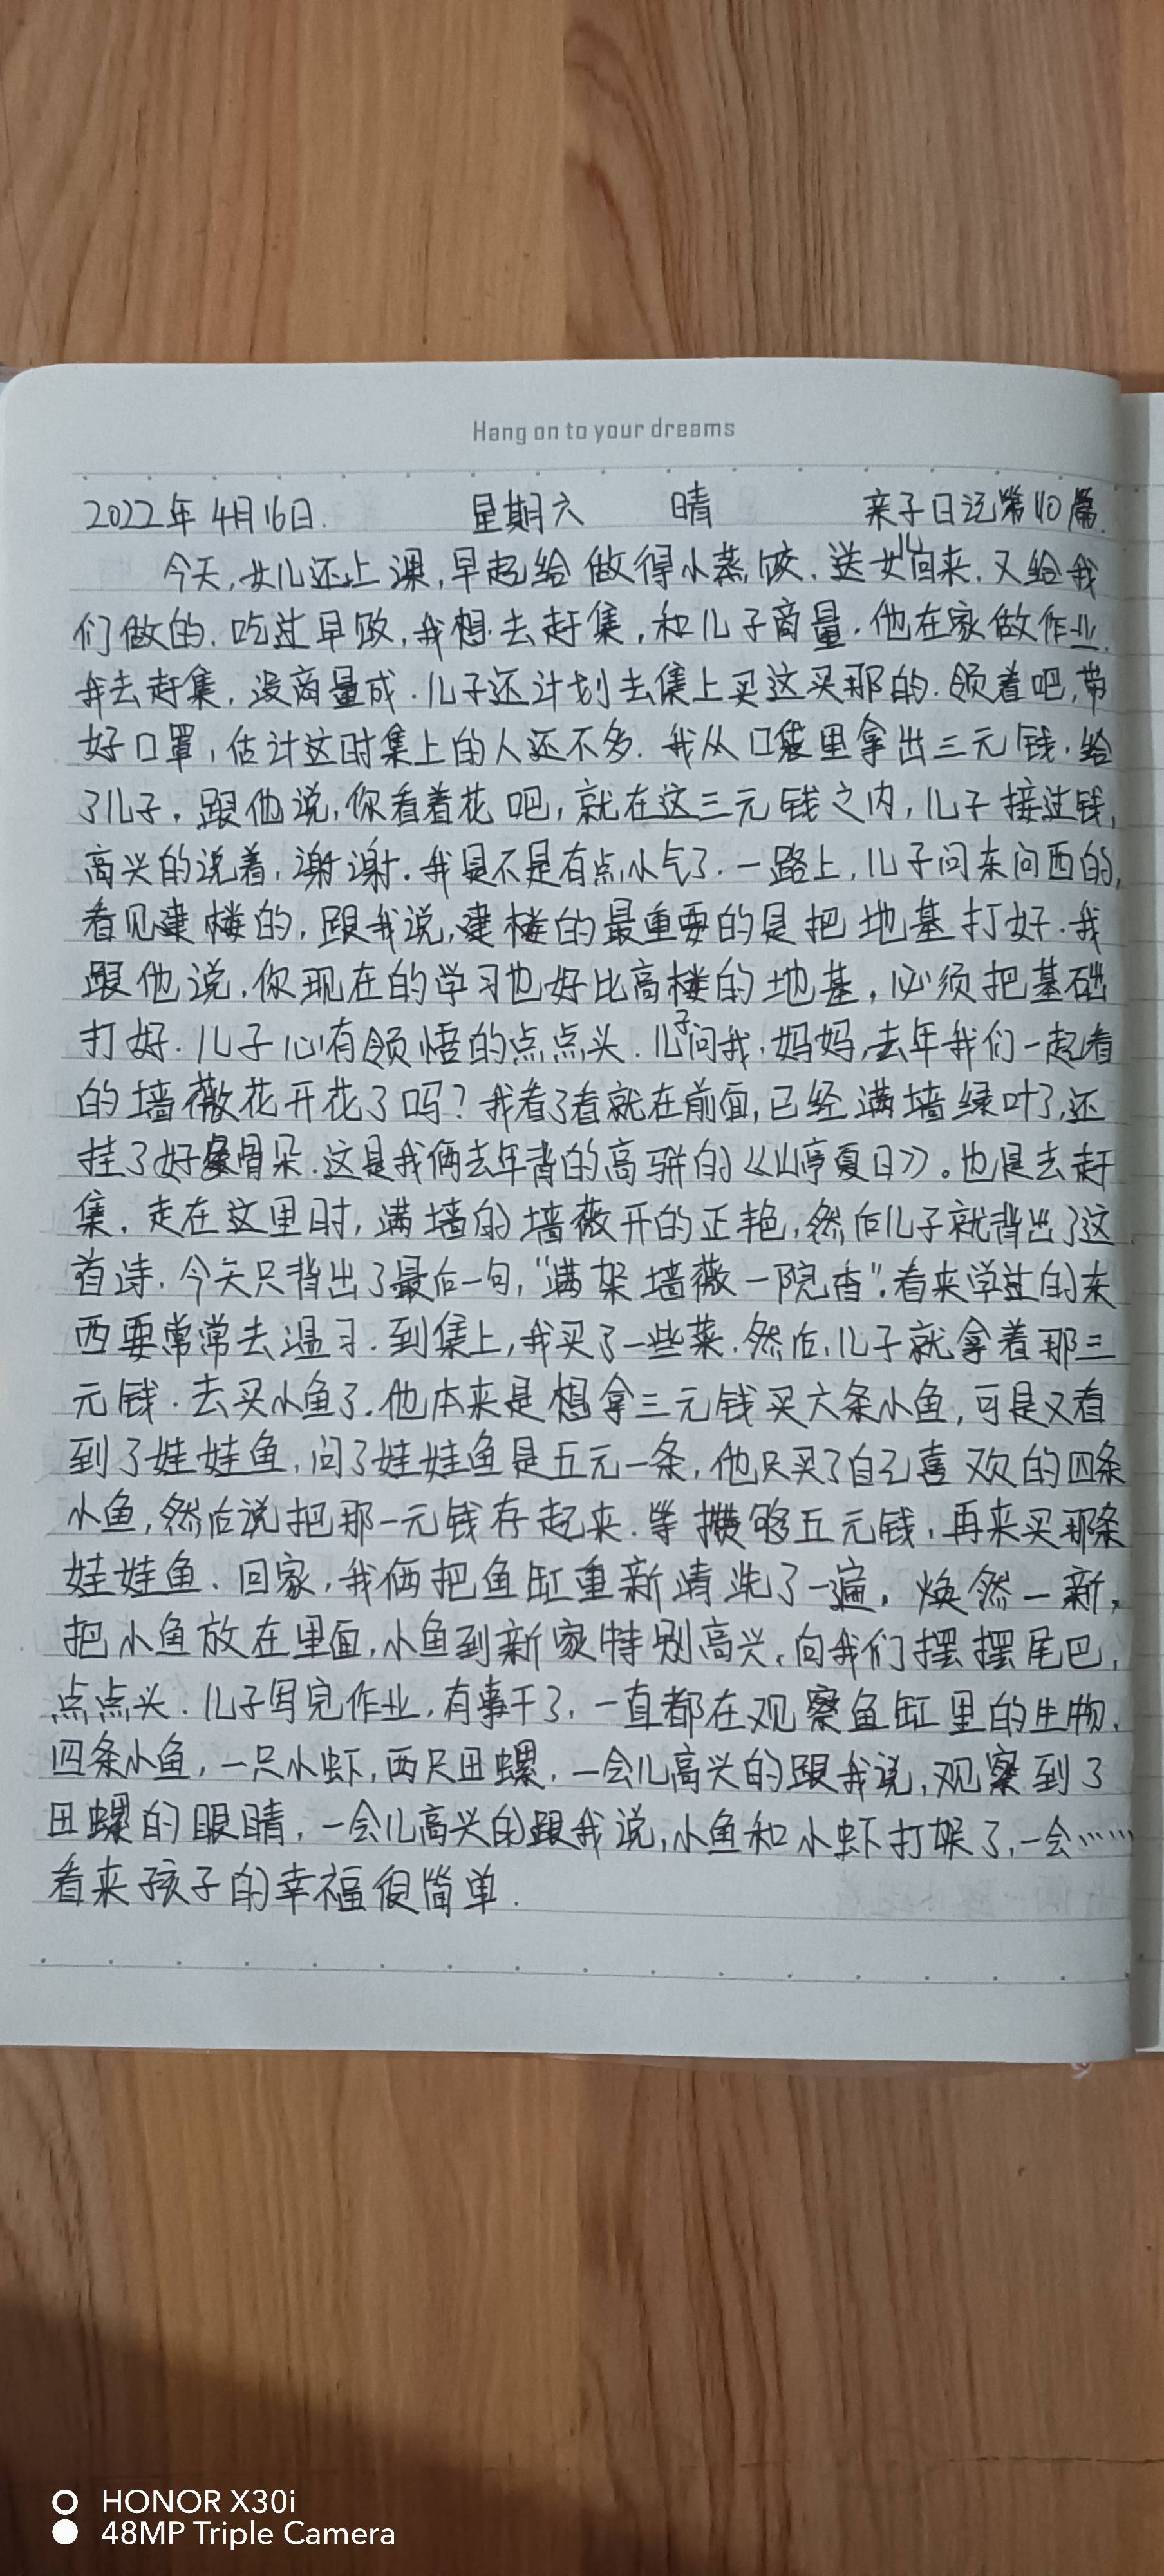 Hang on to your dreams
2022年4月16日. 星期六 晴 亲子日记第110篇.
今天,女儿还上课,早起给做得小蒸饺,送女儿回来,又给我
们做的.吃过早饭,我想去赶集,和儿子商量.他在家做作业.
我去赶集,没商量成.儿子还计划去集上买这买那的.领着吧,带
好口罩,估计这时集上的人还不多.我从口袋里拿出三元钱.给
了儿子,跟他说,你看着花吧,就在这三元钱之内,儿子接过钱,
高兴的说着,谢谢.我是不是有点小气了.一路上,儿子问东问西的,
看见建楼的,跟我说,建楼的最重要的是把地基打好.我
跟他说,你现在的学习也好比高楼的地基,必须把基础
打好.儿子心有领悟的点点头.儿子问我.妈妈,去年我们一起看
的墙薇花开花了吗?我看了看就在前面,已经满墙绿叶了,还
挂了好多骨朵.这是我俩去年背的高骈的《山亭夏日》。也是去赶
集,走在这里时,满墙的墙薇开的正艳,然后儿子就背出了这
首诗.今天只背出了最后一句,“满架墙薇一院香”.看来学过的东
西要常常去温习.到集上,我买了一些菜.然后,儿子就拿着那三
元钱.去买小鱼了.他本来是想拿三元钱买六条小鱼,可是又看
到了娃娃鱼,问了娃娃鱼是五元一条,他只买了自己喜欢的四条
小鱼,然后说把那一元钱存起来.等攒够五元钱,再来买那条
娃娃鱼.回家,我俩把鱼缸重新清洗了一遍,焕然一新,
把小鱼放在里面,小鱼到新家特别高兴,向我们摆摆尾巴,
点点头.儿子写完作业,有事干了,一直都在观察鱼缸里的生物,
四条小鱼,一只小虾,两只田螺,一会儿高兴的跟我说,观察到了
田螺的眼睛,一会儿高兴的跟我说,小鱼和小虾打架了,一会……
看来孩子的幸福很简单.
HONOR X30i
48MP Triple Camera